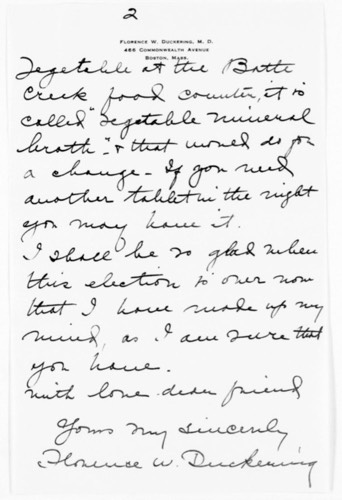 2
FLORENCE W. DUCKERING, M. D.
466 COMMONWEALTH AVENUE
BOSTON, MASS.
Vegetable at the Battle
Creek food counter, it is
called "Vegetable mineral
broth" - & that would do for
a change - If you need
another tablet in the night
you may have it.
I shall be so glad when
this election is over now
that I have made up my
mind, as I am sure that
you have.
With love dear friend
Yours very sincerely
Florence W. Duckering